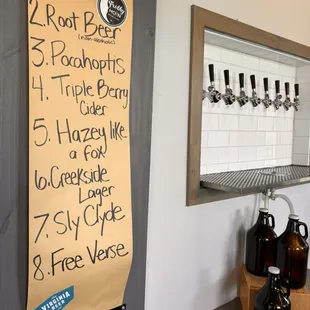 2. Root Beer
(non-alcoholic)
3. Pocahoptis
4. Triple Berry
Cider
5. Hazey like
a fox
6. Creekside
Lager
7. Sly Clyde
8. Free Verse
VIRGINIA
BEER